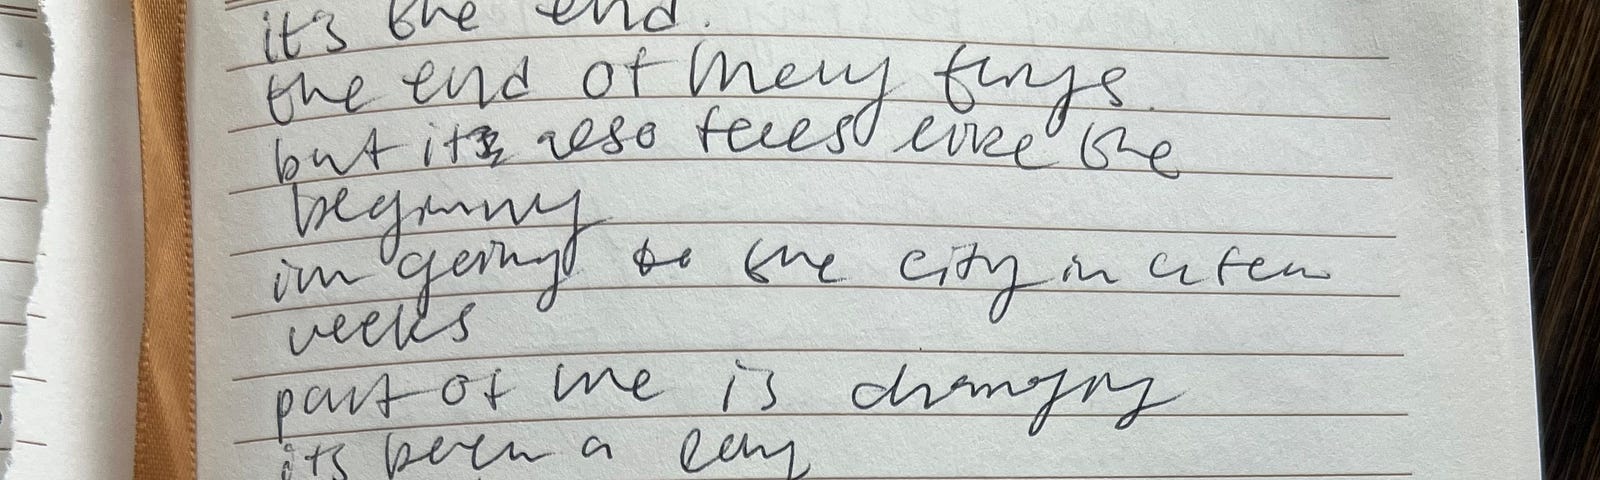 it's the end.
the end of many things.
but it also feels like the
beginning
im going to the city in a few
weeks
part of me is changing
its been a long